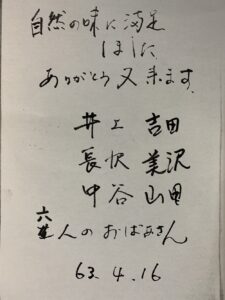 自然の味に満足
しました
ありがとう又来ます
井上 吉田
長沢 美沢
中谷 山田
六人のおばあさん
63.4.16